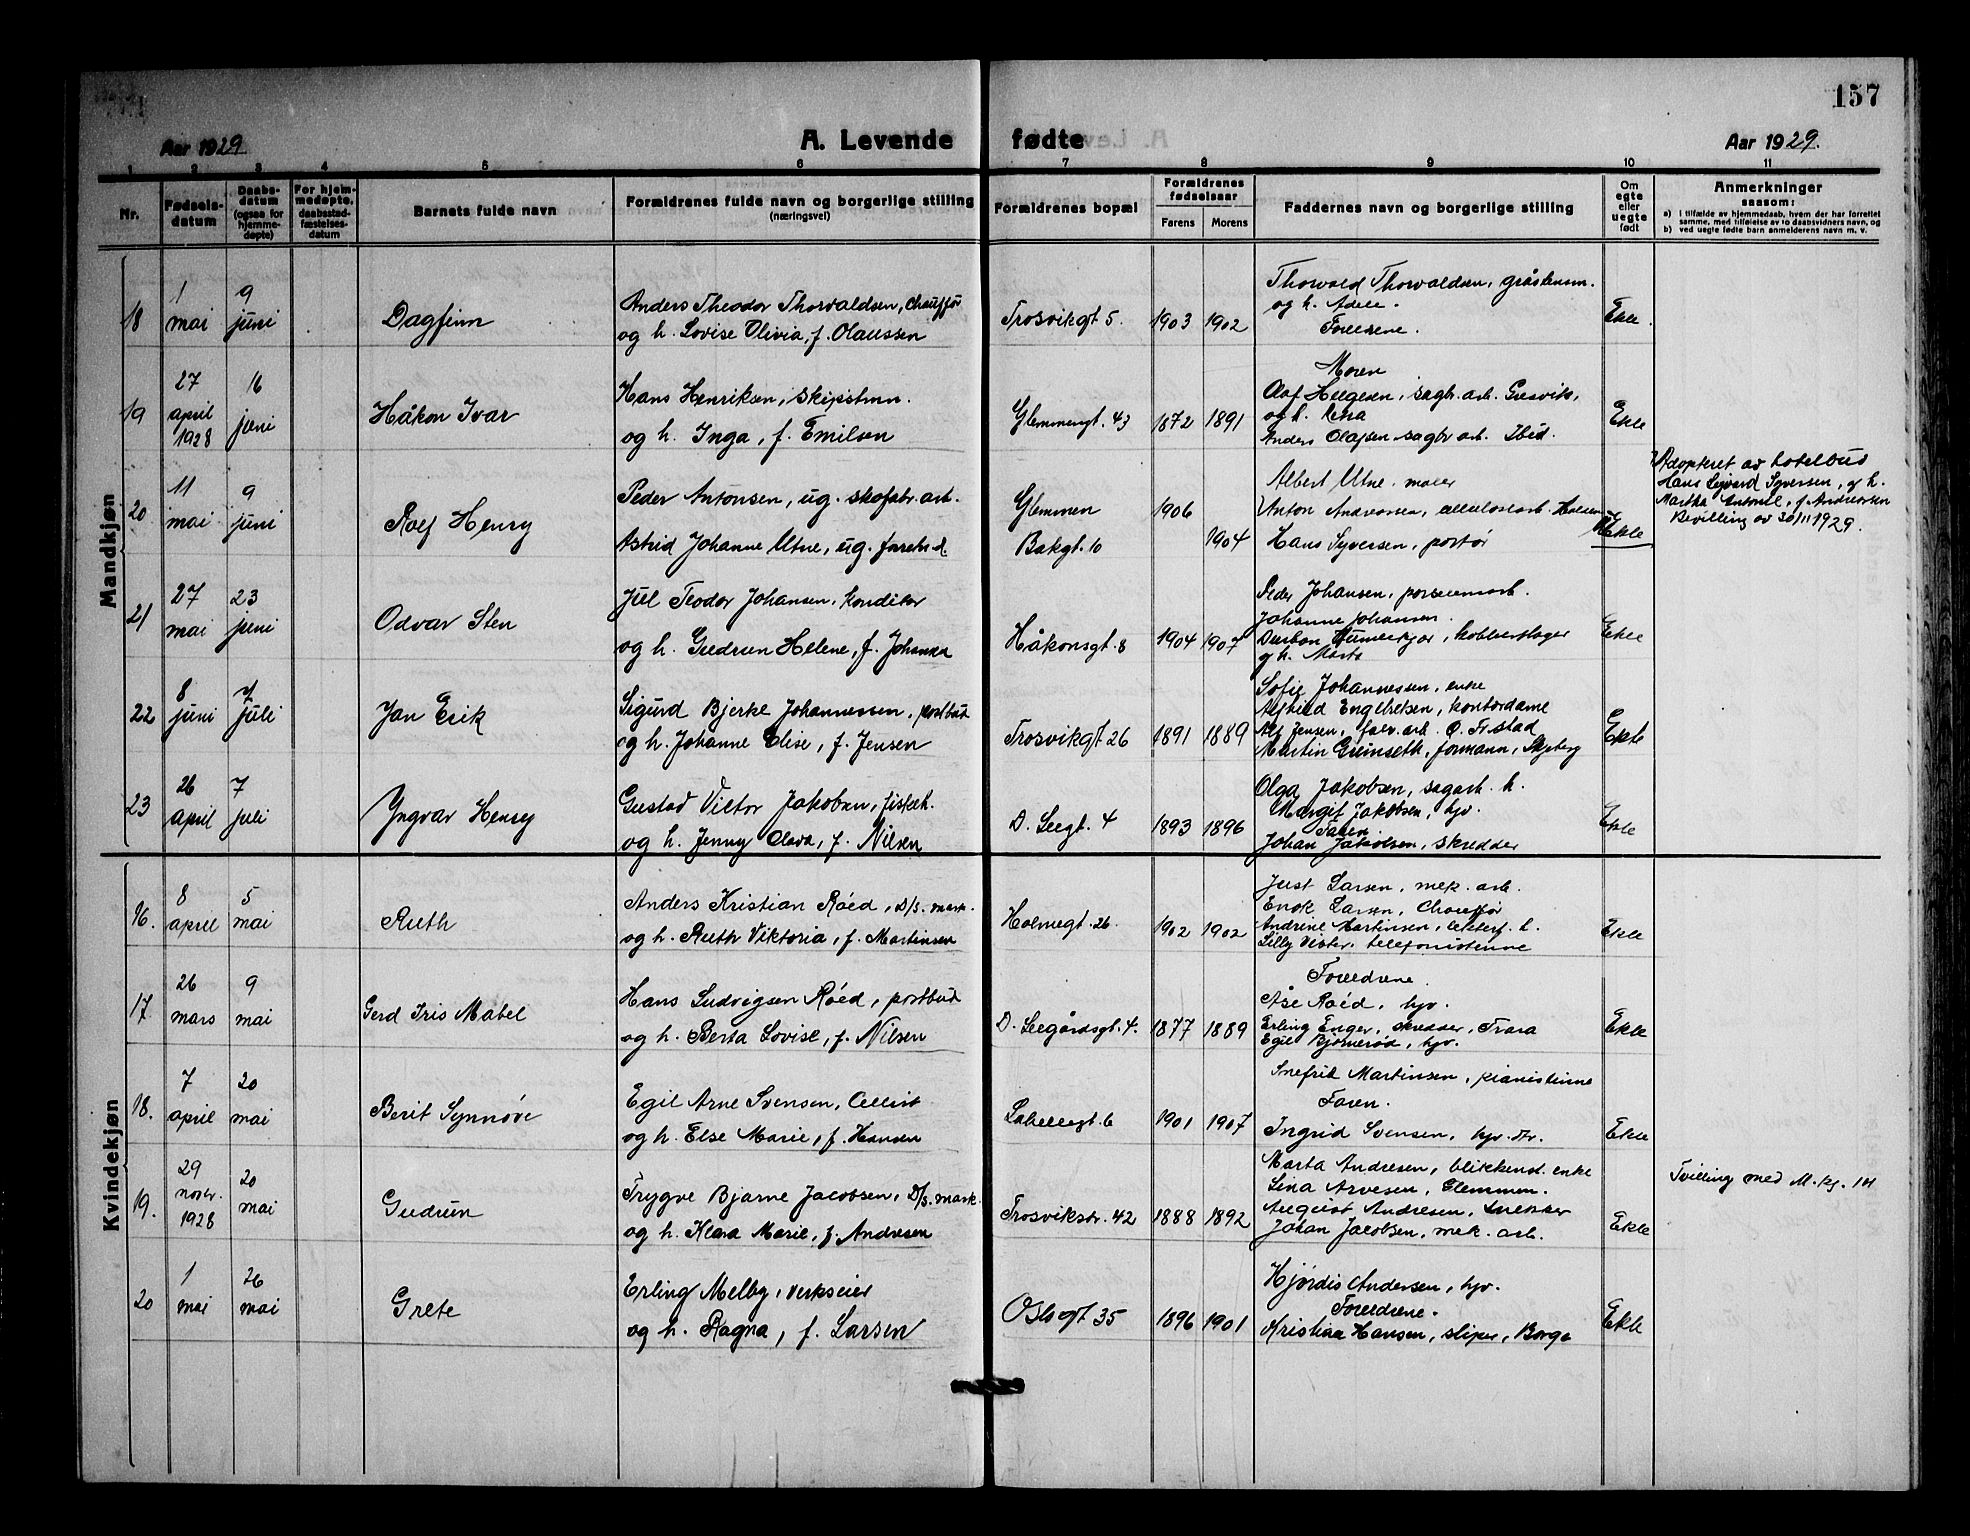 157
Aar 1929
A. Levende fødte
Aar 1929.
1 2 3 4 5 6 7 8 9 10 11
Nr.
Fødsels-
datum
Daabs-
datum
(ogsaa for
hjemme-
døpte)
For hjem-
medøpte,
daabsstad-
fæstelses-
datum
Barnets fulde navn
Forældrenes fulde navn og borgerlige stilling
(næringsvei)
Forældrenes bopæl
Forældrenes
fødselsaar
Farens Morens
Faddernes navn og borgerlige stilling
Om
egte
eller
uegte
født
Anmerkninger
saasom:
a) I tilfælde av hjemmedaab, hvem der har forrettet
samme, med tilføielse av to daabsvidners navn, og
b) ved uegte fødte barn anmelderens navn m. v.
Mandkjøn
18
1
mai
9
juni
Dagfinn
Anders Theodor Thorvaldsen, chauffør
og h. Lovise Olivia, f. Olaussen
Trosvikgt 5.
1903 1902
Thorvald Thorvaldsen,
og h. Adele.
Foreldrene.
Ekte
19
27
april
1928
16
juni
Håkon Ivar
Hans Henriksen, skipstmn.
og h. Inga, f. Emilsen
Glemmengt. 43
1872 1891
Moren
Olaf Helgesen, sagbr. arb. Gresvik,
og h. Lina
Anders Olafsen sagbr arb. Ibid.
Ekte
20
11
mai
9
juni
Rolf Henry
Peder Antonsen, ug. skofabr. arb.
Astrid Johanne Utne, ug. forretn.d.
Glemmen
Bakgt. 10
1906
1904
Albert Utne. maler
Anton Andreassen, cellulosearb.
Hans Syversen, portør
Uekte
Adopteret av hotelbud
Hans Sigvard Syversen, og h.
Martha Antonie, f. Andreassen
Bevilling av 30/11 1929.
21
27
mai
23
juni
Odvar Sten
Jul Teodor Johansen, konditor
og h. Gudrun Helene, f. Johansen
Håkonsgt. 8
1904 1907
Peder Johansen,
Johanne Johansen.
kobberslager
og h. Marta
Ekte
22
8
juni
7
juli
Jan Erik
Sigurd Bjerke Johannessen, postbud
og h. Johanne Elise, f. Jensen
Trosvikgt 26
1891 1889
Sofie Johannessen, enke
Engebretsen, kontordame
Alf Jensen, arb. Ø. Fr.stad
Martin Grimseth, formann, Skjeberg
Ekte
23
26
april
7
juli
Yngvar Henry
Gustav Victor Jakobsen, fiskeh.
og h. Jenny Clara, f. Nilsen
D. Leegt. 4
1893 1896
Olga Jakobsen, sagarb. h.
Margit Jakobsen, hjv.
Faren
Johan Jakobsen, skredder
Ekte
Kvindekjøn
16.
8
april
5
mai
Ruth
Anders Kristian Røed, D/S. mask.
og h. Ruth Viktoria, f. Martinsen
Holmegt. 26.
1902 1902
Just Larsen, mek. arb.
Enok Larsen, Chauffør
Andrine Martinsen,
Lilly Vister, telefonistinne
Ekte
17.
26
mars
9
mai
Gerd Iris Mabel
Hans Ludvigsen Røed, postbud
og h. Berta Lovise, f. Nilsen
D. Leegårdsgt. 4.
1877 1889
Foreldrene
Åse Røed, hjv.
Erling Enger, skredder, Trara
Egil Bjørnerød, hjv.
Ekte
18.
7
april
20
mai
Berit Synnøve
Egil Arne Svensen, Cellist
og h. Else Marie, f. Hansen
Labellegt. 6
1901 1907
Snefrid Martinsen, pianistinne
Faren.
Ingrid Svensen, hjv.
Ekte
19.
29
novbr.
1928
20
mai
Gudrun
Trygve Bjarne Jacobsen, D/S. mask.
og h. Klara Marie, f. Andresen
Trosvikstr. 42
1888 1892
Marta Andresen, blikkensl. enke
Lina Arvesen, Glemmen.
August Andresen, snekker
Johan Jacobsen, mek. arb.
Ekte
Tvilling med M. kj. 14
20
1
mai
26
mai
Grete
Erling Melby, verkseier
og h. Ragna, f. Larsen
Oslogt 35
1896 1901
Hjørdis Andersen, hjv.
Foreldrene.
Kristian Hansen, sliper, Borge
Ekte